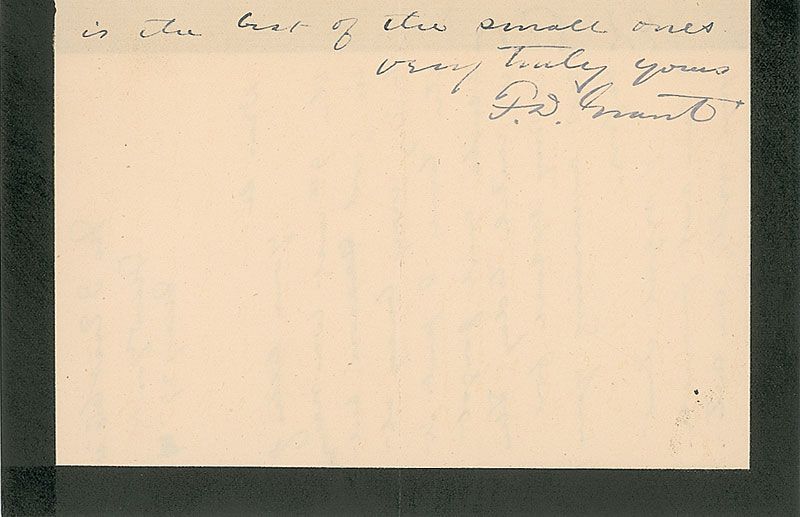 is the best of the small ones
very truly yours
F. D. Grant